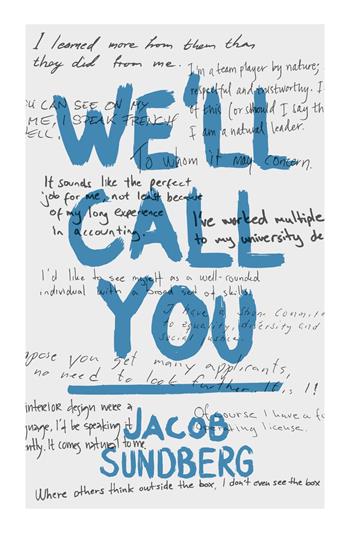 I learned more from them than
they did from me.
I'm a team player by nature;
respectful and trustworthy. I
of this (or should I say th
I am a natural leader.
U CAN SEE ON MY
ME, I SPEAK FRENCH
ELL.
WE'LL
To whom it may concern.
It sounds like the perfect
job for me, not least because
of my long experience
in accounting.
I've worked multiple
to my university de
CALL
I'd like to see myself as a well-rounded
individual with a broad set of skills
I have a strong commit
to equality, diversity and
social justice.
YOU
pose you get many applicants,
no need to look further. It is I!
interior design were a
guage, I'd be speaking it
ntly. It comes natural to me
Of course I have a f
operating license.
JACOB
SUNDBERG
Where others think outside the box, I don't even see the box